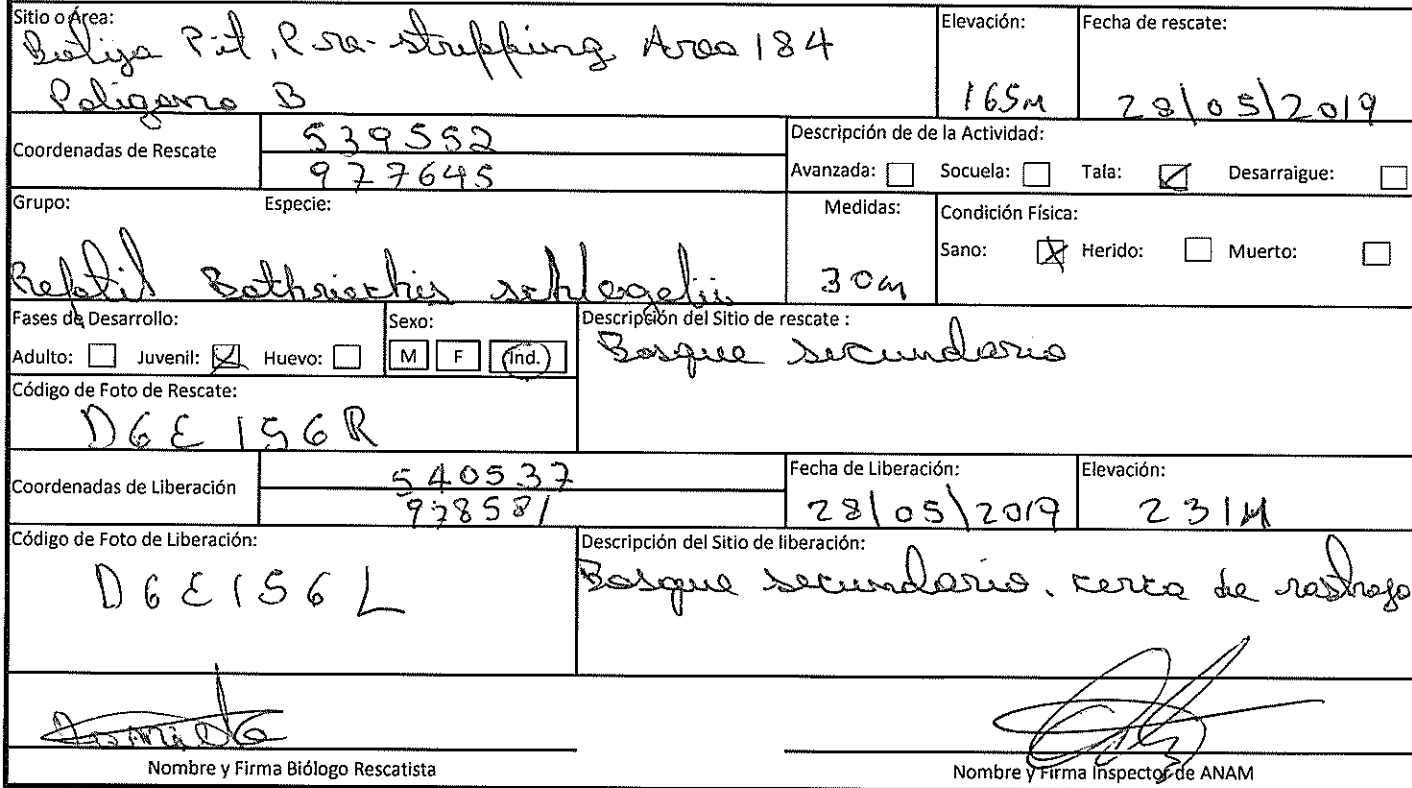 Sitio o Área:
Botija Pit, Pre-stripping Area 184
Poligono B
Elevación:
165M
Fecha de rescate:
28/05/2019
Coordenadas de Rescate
539552
977645
Descripción de de la Actividad:
Avanzada: Socuela: Tala: Desarraigue:
Grupo: Especie:
Reptil Bothriechis schlegelii
Medidas:
30cm
Condición Física:
Sano: Herido: Muerto:
Fases de Desarrollo:
Adulto: Juvenil: Huevo:
Sexo:
M F Ind.
Descripción del Sitio de rescate :
Bosque secundario
Código de Foto de Rescate:
DGE156R
Coordenadas de Liberación
540537
978581
Fecha de Liberación:
28/05/2019
Elevación:
231M
Código de Foto de Liberación:
DGE156L
Descripción del Sitio de liberación:
Bosque secundario. cerca de rastrojo
Nombre y Firma Biólogo Rescatista
Nombre y Firma Inspector de ANAM